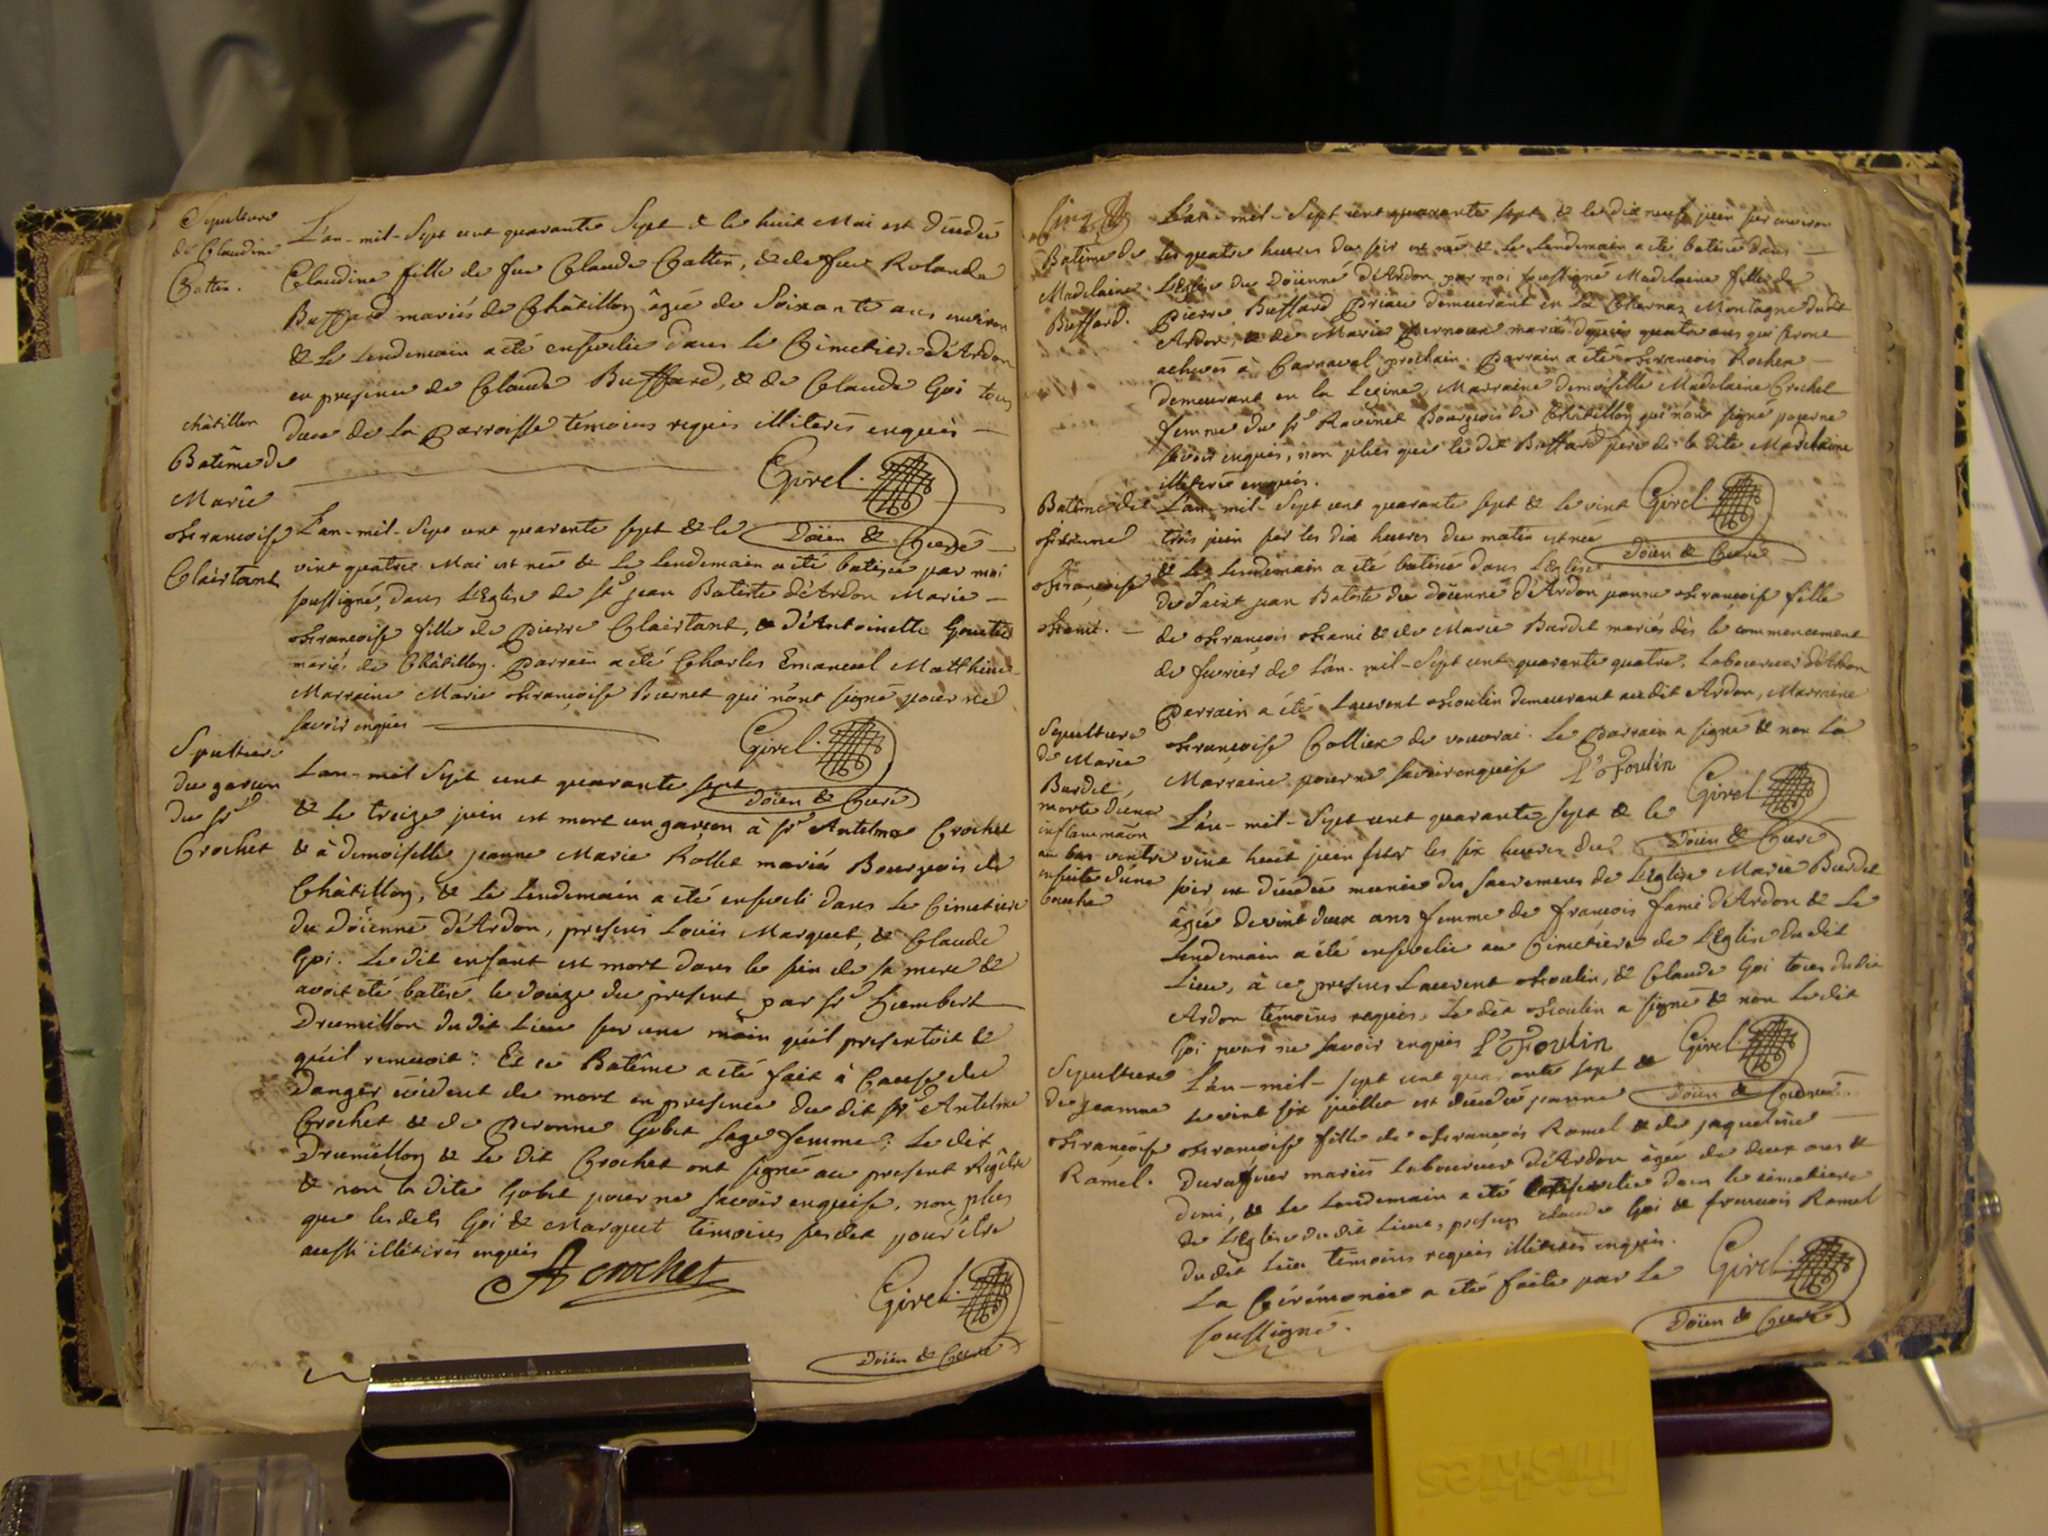 Sepulture
de Claudine
Gattin.
L'an-mil-Sept cent quarante Sept & le huit Mai est décédée
Claudine fille de feu Claude Gattin, & de feue Rolande
Buffard mariés de Châtillon âgée de Soixante ans environ
& Le Lendemain a été ensevelie dans le Cimetiere d'Ardon
en presence de Claude Buffard, & de Claude Goi tous
deux de la Parroisse témoins requis illiterés enquis
Girel.
Doïen & Curé
châtillon
Batême de
Marie
Francoise
Clairtant
L'an-mil-Sept cent quarante sept & le
vint quatre Mai est née & Le Lendemain a été batisée par moi
soussigné, dans L'Eglise de St jean Batiste d'Ardon Marie
Francoise fille de Pierre Clairtant, & d'Antoinette
mariés de Châtillon. Parrain a été Charles Emanuel Matthieu
Marraine Marie Françoise Burnet qui n'ont signé pour ne
savoir enquis
Girel.
Doïen & Curé
Sepulture
du garçon
du Sr
Crochet
L'an-mil Sept cent quarante sept
& le treize juin est mort un garçon à Sr Antelme Crochet
& à demoiselle jeanne Marie Rollet mariés Bourgeois de
Châtillon, & Le Lendemain a été enseveli dans Le Cimetiere
du doïenné d'Ardon, presens Louïs Marquet, & Claude
Goi. Le dit enfant est mort dans le sein de sa mere &
avoit été batisé le douze du present par Sr Humbert
Drumillon du dit Lieu sur une main qu'il presentoit &
qu'il remuoit: Et ce Batême a été fait à Cause du
danger évident de mort en presence du dit Sr Antelme
Crochet & de Peronne Gobet Sage femme: Le dit
Drumillon & Le dit Crochet ont signé au present Régitre
& non la dite Gobet pour ne savoir enquise, non plus
que lesdits Goi & Marquet témoins susdits pour être
aussi illiterés enquis
A crochet
Girel.
Doïen & Curé
Cinq
Batême de
Madelaine
Buffard.
L'an-mil-Sept cent quarante sept & le dix neuf juin sur environ
les quatre heures du soir est née & Le Lendemain a été batisée dans
L'Eglise du Doïenné d'Ardon par moi soussigné Madelaine fille de
Pierre Buffard demeurant en La Montagne dudit
Ardon, & de Marie Pernoux mariés depuis quatre ans qui seront
achevés à Carnaval prochain. Parrain a été Francois Rochea
demeurant en la Marraine demoiselle Madelaine Crochet
femme du Sr Ravinet Bourgeois de Châtillon qui n'ont signé pour ne
savoir enquis, non plus que le dit Buffard pere de la dite Madelaine
illiteré enquis.
Girel.
Doïen & Curé
Batême de
jeanne
Françoise
Fami.
L'an-mil-Sept cent quarante sept & le vint
trois juin sur les dix heures du matin est née
& Le Lendemain a été batisée dans L'Eglise
de Saint jean Batiste du doïenné d'Ardon jeanne Francoise fille
de François Fami & de Marie Burdet mariés dès le commencement
de fevrier de L'an-mil-Sept cent quarante quatre, laboureurs d'Ardon
Parrain a été Laurent Foulin demeurant audit Ardon, Marraine
Françoise Collier de vouvrai. Le Parrain a signé & non La
Marraine pour ne savoir enquise
L's Foulin
Girel.
Doïen & Curé
Sepulture
de Marie
Burdet
morte d'une
inflammaõn
au bas ventre
ensuite d'une
couche
L'an-mil-Sept cent quarante sept & le
vint huit juin sur les six heures du
soir est décédée munie des Sacremens de L'Eglise Marie Burdet
âgée de vint deux ans femme de francois fami d'Ardon & Le
Lendemain a été ensevelie au Cimetiere de L'Eglise du dit
Lieu, à ce presens Laurent Foulin, & Claude Goi tous dudit
Ardon témoins requis. Le dit Foulin a signé & non Le dit
Goi pour ne savoir enquis
L's Foulin
Girel.
Doïen & Curé
Sepulture
de jeanne
Françoise
Ramel.
L'an-mil-sept cent quarante sept &
Le vint six juillet est décédée jeanne
Francoise fille de François Ramel & de jaqueline
mariés laboureurs d'Ardon âgée de deux ans &
demi, & Le Lendemain a été ensevelie dans le cimetiere
de L'Eglise du dit Lieu, presens claude Goi & francois Ramel
du dit Lieu témoins requis illiterés enquis.
La Cérémonie a été faite par Le
soussigné.
Girel.
Doïen & Curé
friskies